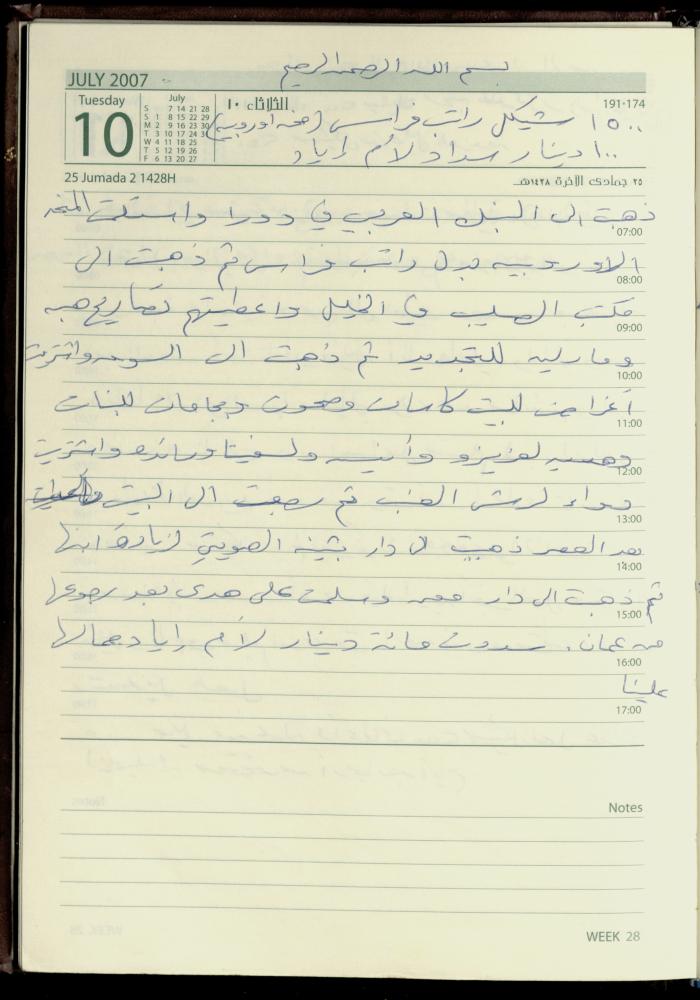 بسم الله الرحمن الرحيم
JULY 2007
Tuesday
10
July
S 7 14 21 28
S 1 8 15 22 29
M 2 9 16 23 30
T 3 10 17 24 31
W 4 11 18 25
T 5 12 19 26
F 6 13 20 27
الثلاثاء ١٠
191-174
١٥٠٠ شيكل راتب فراس (منحة أوروبية)
١٠٠ دينار سداد لأم إياد
25 Jumada 2 1428H
٢٥ جمادى الآخرة ١٤٢٨هـ
ذهبت الى البنك العربي في دورا واستلمت المنحه
07:00
الاوروبيه بدل راتب فراس ثم ذهبت الى
08:00
مكتب الصليب في الخليل واعطيتهم تصاريح هبه
09:00
وماريه للتجديد ثم ذهبت الى السوق واشتريت
10:00
أغراض للبيت كاسات وصحون وبجامات للبنات
11:00
لعزيزو واشتريت
12:00
دواء لرش العنب ثم رجعت الى البيت
13:00
بعد العصر ذهبت الى دار بثينه لزيارة ابنها
14:00
ثم ذهبت الى دار وسلمت على هدى بعد رجوعها
15:00
من عمان. سددت مائة دينار لأم إياد مما لها
16:00
علينا
17:00
Notes
WEEK 28